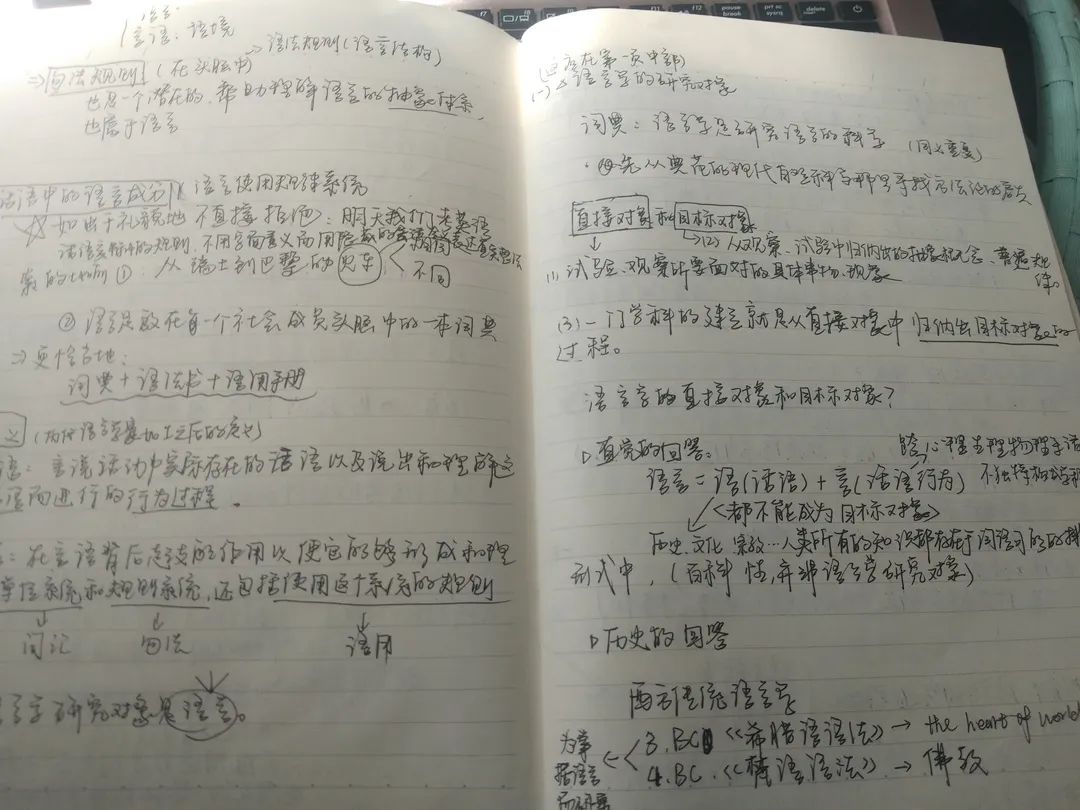 言语：语境
→语法规则(语言结构)
⇒句法规则(在头脑中)
也是一个潜在的、帮助理解语言的抽象体系，
也属于语言
话语中的语言成分 语言使用规律系统
☆如出于礼貌地不直接拒绝：明天我打
话语
不用字面意义而用隐
① 从瑞士到巴黎的
不同
② 语言是放在每一个社会成员头脑中的一本词典
⇒更恰当地：
词典+语法书+语用手册
语：言说活动中实际存在的话语以及说出和理解这
而进行的行为过程。
：在言语背后起支配作用以便它能够形成和理
单位系统和规则系统，还包括使用这个系统的规则
↓ ↓ ↓
词汇 句法 语用
言学研究对象是语言。
(应在第一页中部)
(一)语言学的研究对象
词典：语言学是研究语言的科学 (同义重复)
·首先从典范的现代自然科学那里寻找方法论的启示
直接对象和目标对象
↓ →(2)从观察、试验中归纳出的抽象概念、普遍规律。
(1)试验、观察所要面对的具体事物、现象
(3)一门学科的建立就是从直接对象中归纳出目标对象的
过程。
语言学的直接对象和目标对象？
直觉的回答： 跨心理生理物理等
语言=语(话语)+言(话语行为)
<都不能成为目标对象>
历史、文化、宗教…人类所有的知识都存在于
形式中，(百科性，并非语言学研究对象)
历史的回答
西方传统语言学
3.BC《希腊语语法》→ the heart of world
4.BC.《梵语语法》→佛教
为掌
据语言
而研究